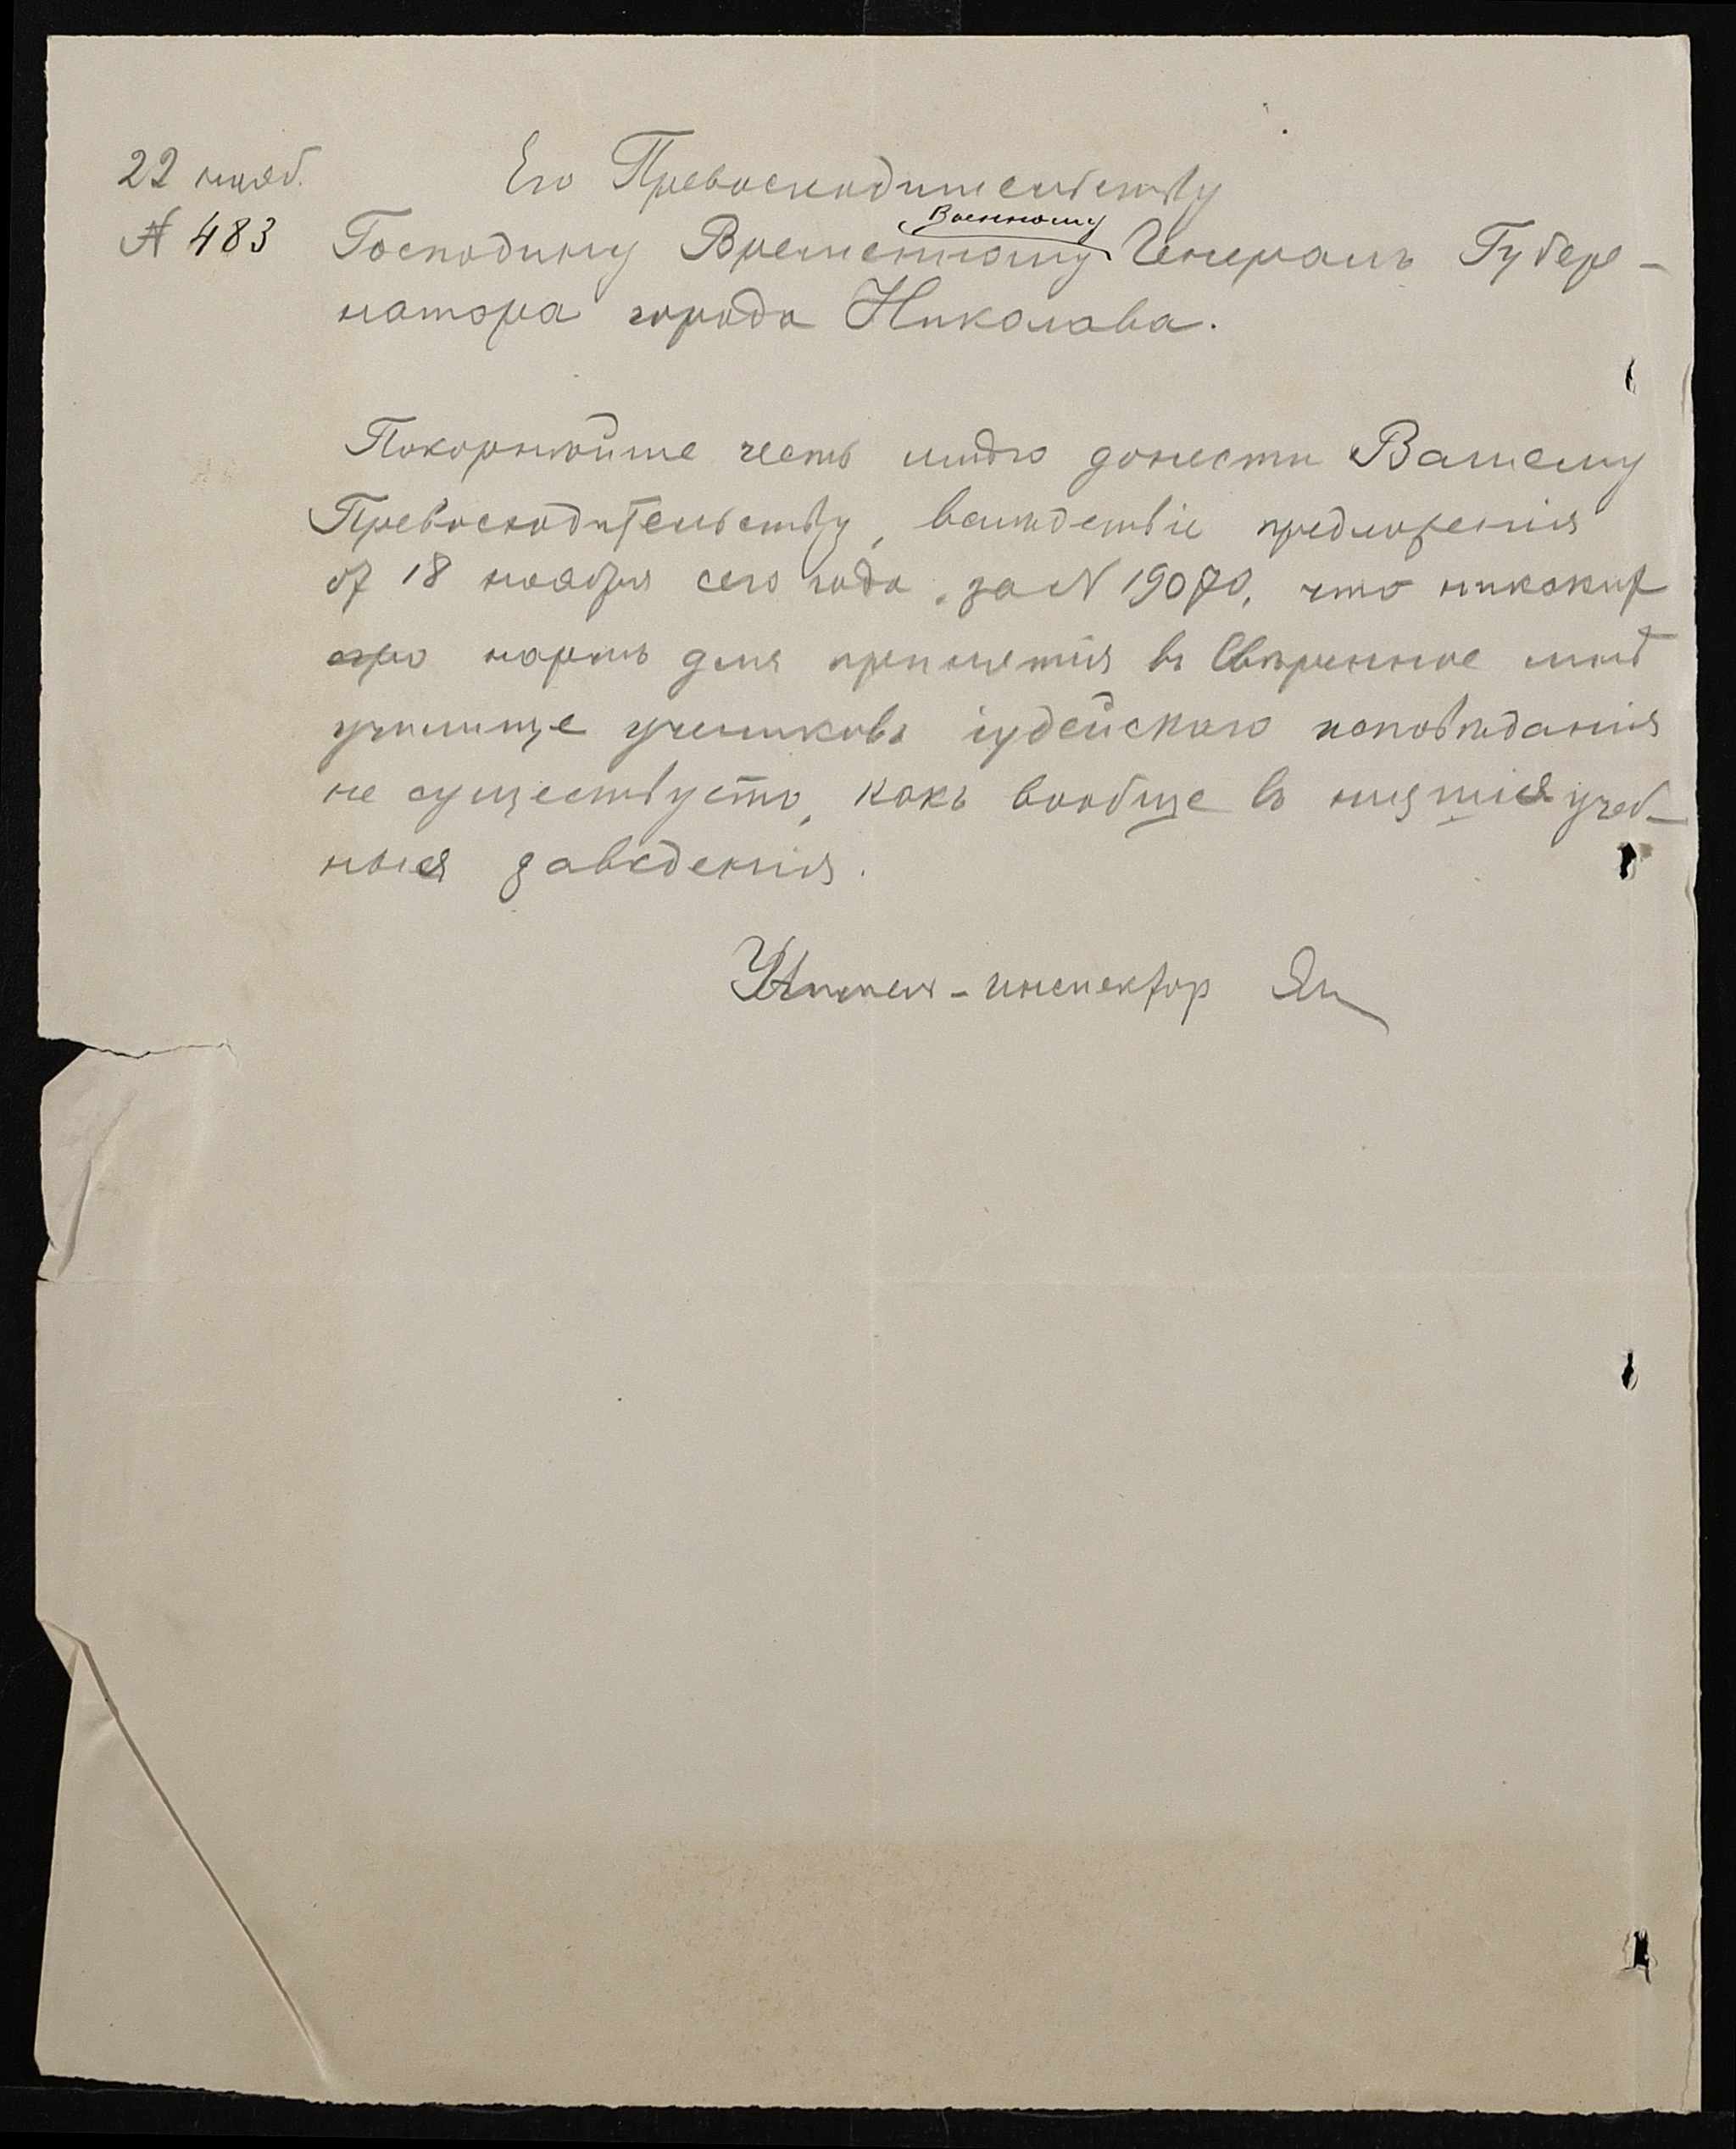 22 нояб.
№ 483
Его Превосходительству
Военному
Господину Временному Генералъ Губер-
натора города Николаева.
Покорнѣйше честь имѣю донести Вашему
Превосходительству, вслѣдствіе предложенія
от 18 ноября сего года за N 19070, что никаких
нормъ для принятія въ Ввѣренное мнѣ
училище учениковъ іудейскаго исповѣданія
не существуетъ, какъ вообще въ низшія учеб-
ныя заведенія.
Учитель-инспектор